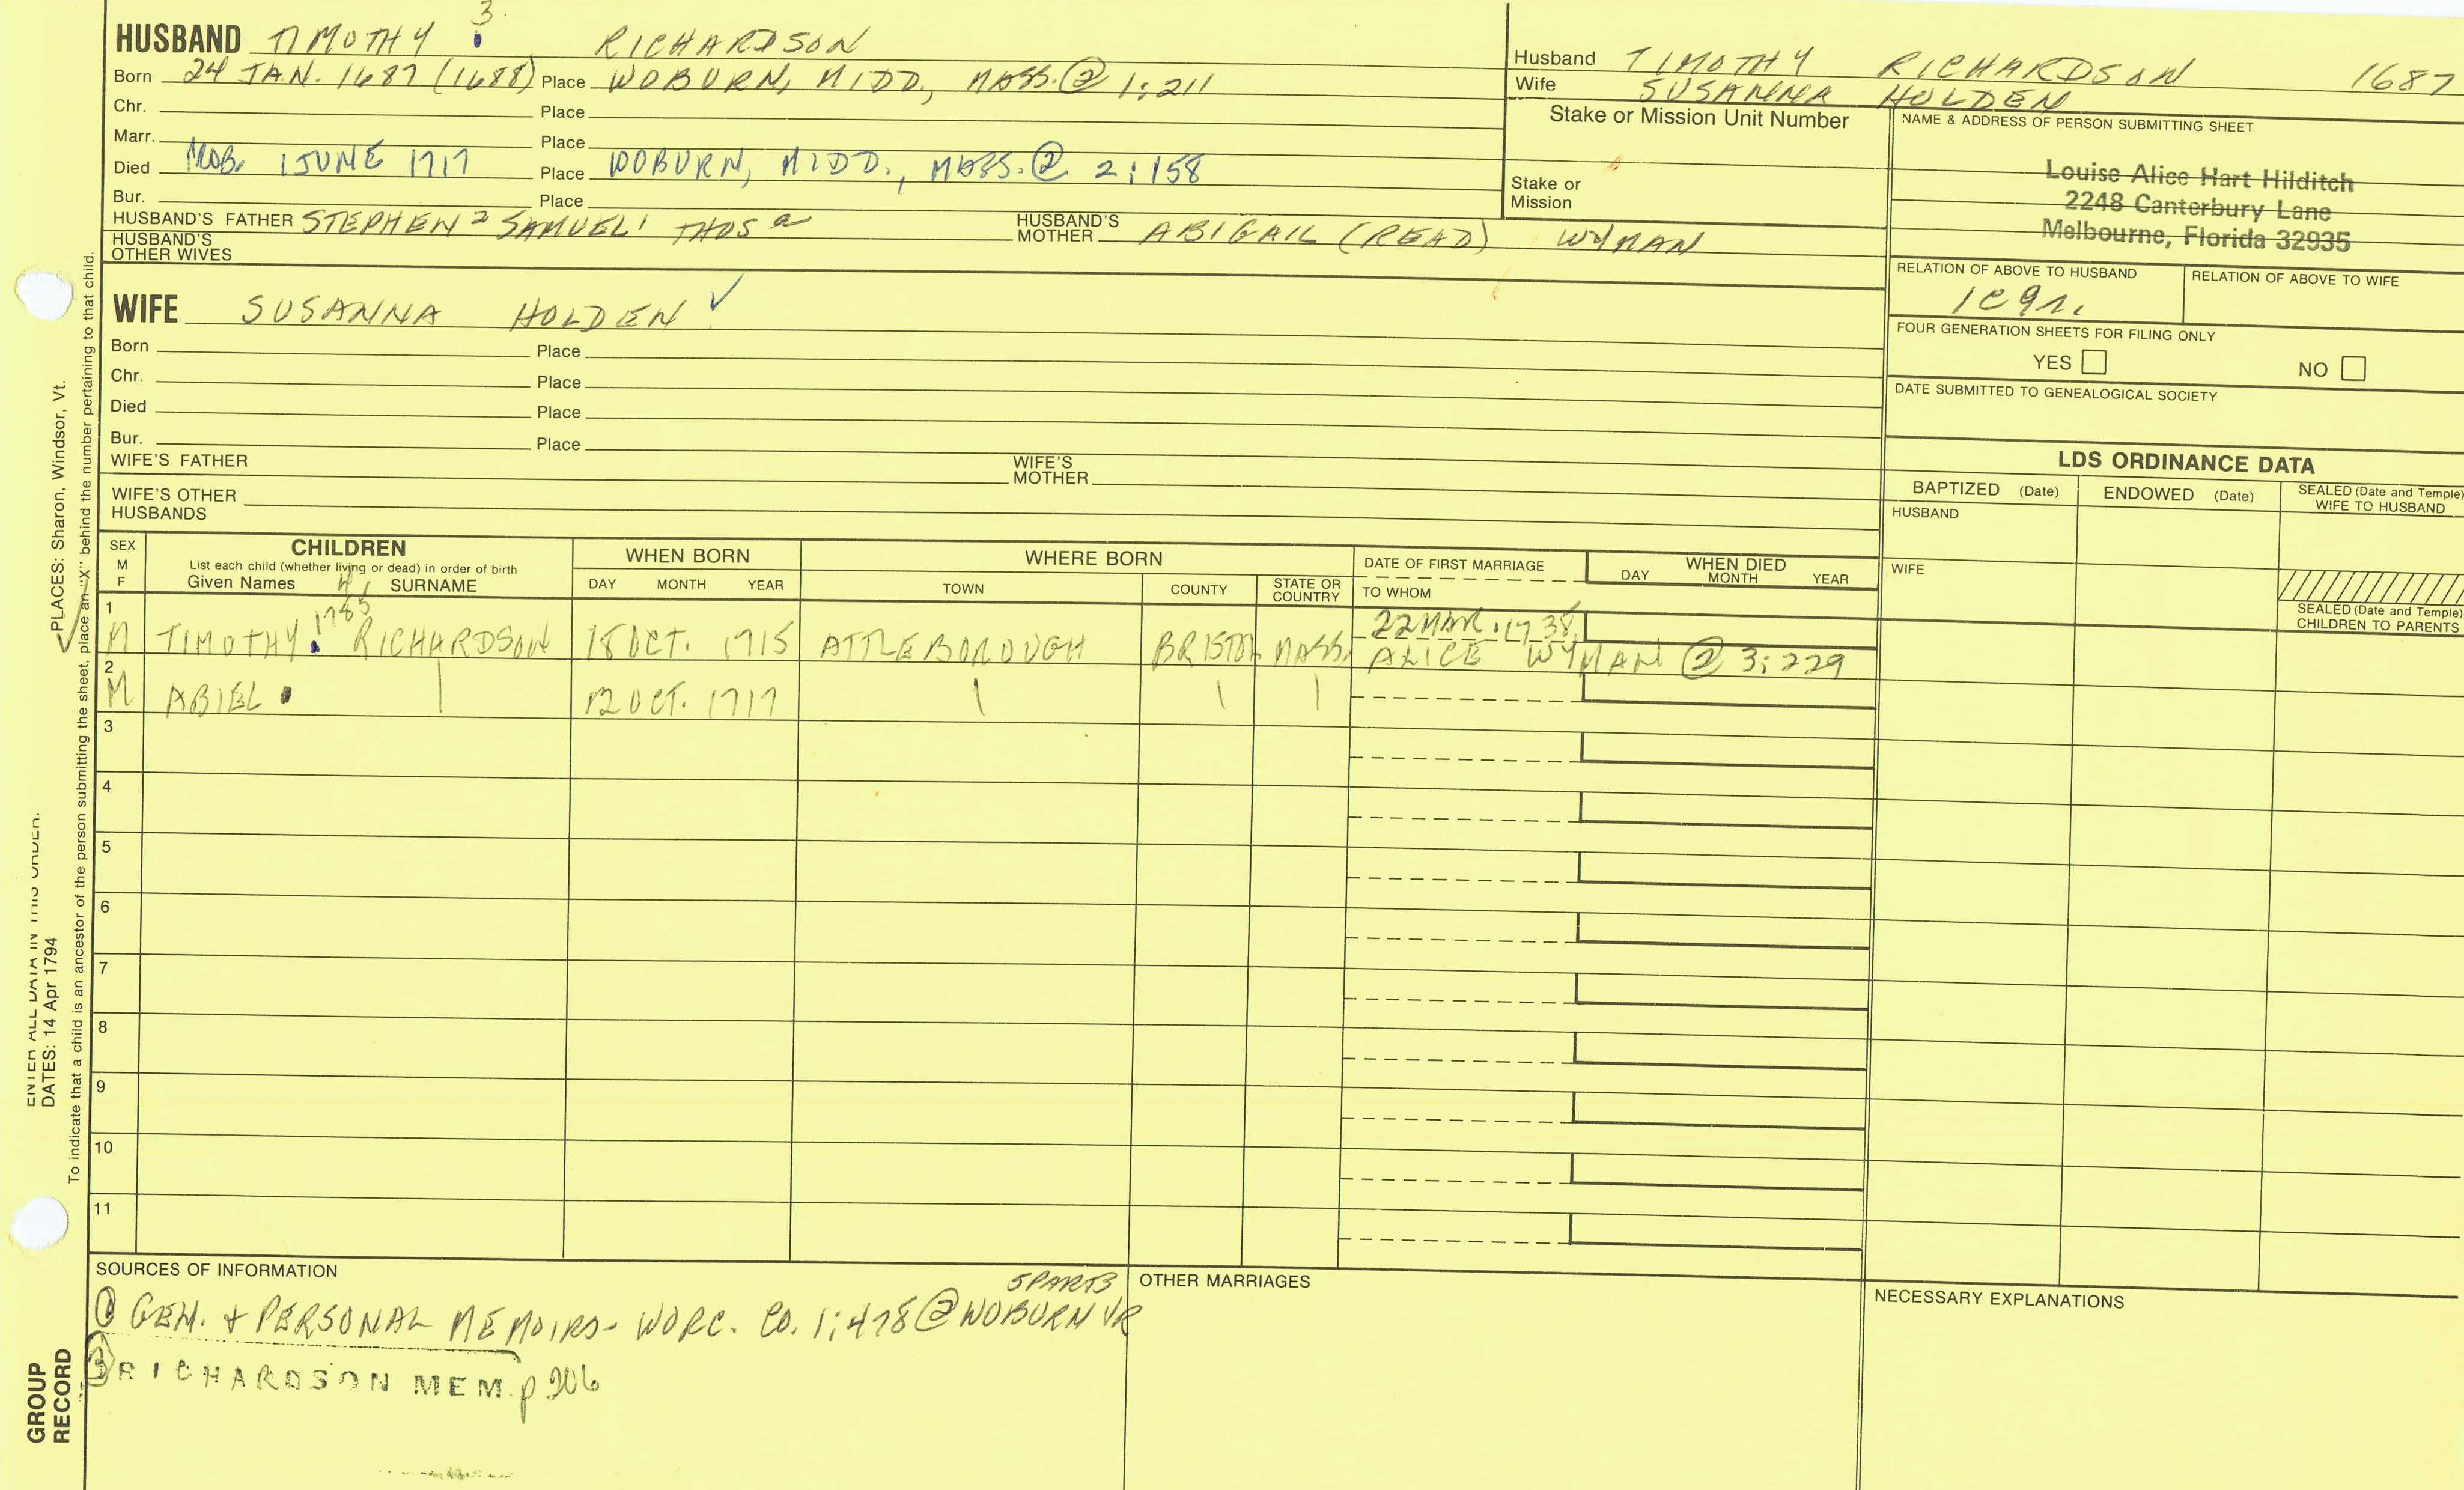 3.
HUSBAND TIMOTHY RICHARDSON
Born 24 JAN. 1687 (1688) Place WOBURN, MIDD., MASS. @ 1:211
Chr. Place
Marr. Place
Died 1 JUNE 1717 Place WOBURN, MIDD., MASS. @ 2:158
Bur. Place
HUSBAND'S FATHER STEPHEN 2 SAMUEL 1 THOS a HUSBAND'S MOTHER ABIGAIL (READ) WYMAN
HUSBAND'S OTHER WIVES
Husband TIMOTHY RICHARDSON 1687
Wife SUSANNA HOLDEN
Stake or Mission Unit Number
Stake or
Mission
NAME & ADDRESS OF PERSON SUBMITTING SHEET
Louise Alice Hart Hilditch
2248 Canterbury Lane
Melbourne, Florida 32935
RELATION OF ABOVE TO HUSBAND RELATION OF ABOVE TO WIFE
FOUR GENERATION SHEETS FOR FILING ONLY
YES NO
DATE SUBMITTED TO GENEALOGICAL SOCIETY
WIFE SUSANNA HOLDEN ✓
Born Place
Chr. Place
Died Place
Bur. Place
WIFE'S FATHER WIFE'S MOTHER
WIFE'S OTHER
HUSBANDS
LDS ORDINANCE DATA
BAPTIZED (Date) ENDOWED (Date) SEALED (Date and Temple) WIFE TO HUSBAND
HUSBAND
WIFE
SEALED (Date and Temple)
CHILDREN TO PARENTS
SEX
M
F
CHILDREN
List each child (whether living or dead) in order of birth
Given Names SURNAME
WHEN BORN
DAY MONTH YEAR
WHERE BORN
TOWN COUNTY STATE OR COUNTRY
DATE OF FIRST MARRIAGE
TO WHOM
WHEN DIED
DAY MONTH YEAR
4,
1785
1 M TIMOTHY. RICHARDSON 18 OCT. 1715 ATTLEBOROUGH BRISTOL MASS. 22 MAR. 1738
ALICE WYMAN @ 3:229
2 M ABIEL 12 OCT. 1717
3
4
5
6
7
8
9
10
11
SOURCES OF INFORMATION
① GEN. + PERSONAL MEMOIRS - WORC. CO. 1:478 @ WOBURN VR
5 PARTS
③ RICHARDSON MEM. p 206
OTHER MARRIAGES
NECESSARY EXPLANATIONS
PLACES: Sharon, Windsor, Vt.
ENTER ALL DATA IN THIS ORDER.
DATES: 14 Apr 1794
To indicate that a child is an ancestor of the person submitting the sheet, place an "X" behind the number pertaining to that child.
GROUP
RECORD